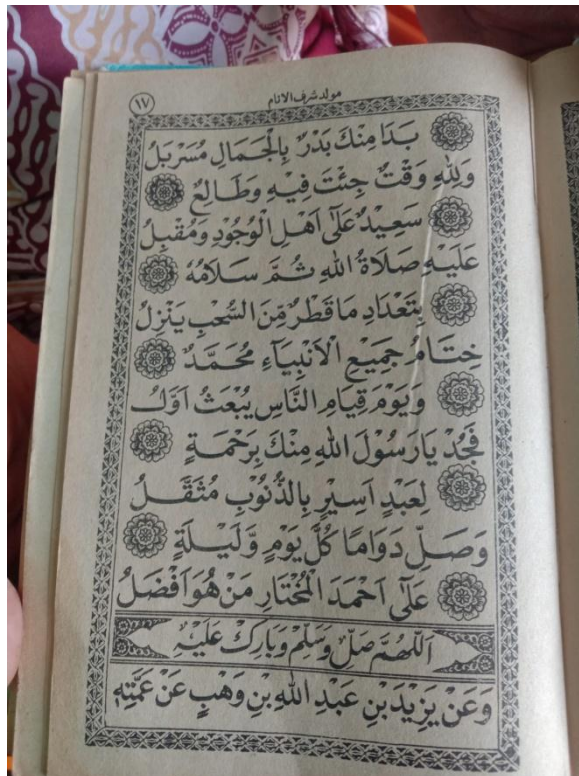 مولد شرف الانام
١٧
بَدَا مِنْكَ بَدْرٌ بِالْجَمَالِ مُسَرْبَلُ
وَلِلّٰهِ وَقْتٌ جِئْتَ فِيْهِ وَطَالِعٌ
سَعِيْدٌ عَلٰٓى اَهْلِ الْوُجُوْدِ وَمُقْبِلُ
عَلَيْهِ صَلَاةُ اللهِ ثُمَّ سَلَامُهٗ
بِتَعْدَادِ مَا قَطْرٌ مِّنَ السُّحْبِ يَنْزِلُ
خِتَامُ جَمِيْعِ الْاَنْبِيَآءِ مُحَمَّدٌ
وَيَوْمَ قِيَامِ النَّاسِ يُبْعَثُ اَوَّلُ
فَجُدْ يَارَسُوْلَ اللهِ مِنْكَ بِرَحْمَةٍ
لِعَبْدٍ اَسِيْرٍ بِالذُّنُوْبِ مُثَقَّلُ
وَصَلِّ دَوَامًا كُلَّ يَوْمٍ وَّلَيْلَةٍ
عَلٰٓى اَحْمَدَ الْمُخْتَارِ مَنْ هُوَ اَفْضَلُ
اَللّٰهُمَّ صَلِّ وَسَلِّمْ وَبَارِكْ عَلَيْهِ
وَعَنْ يَزِيْدَ بْنِ عَبْدِ اللهِ بْنِ وَهْبٍ عَنْ عَمَّتِهٖ